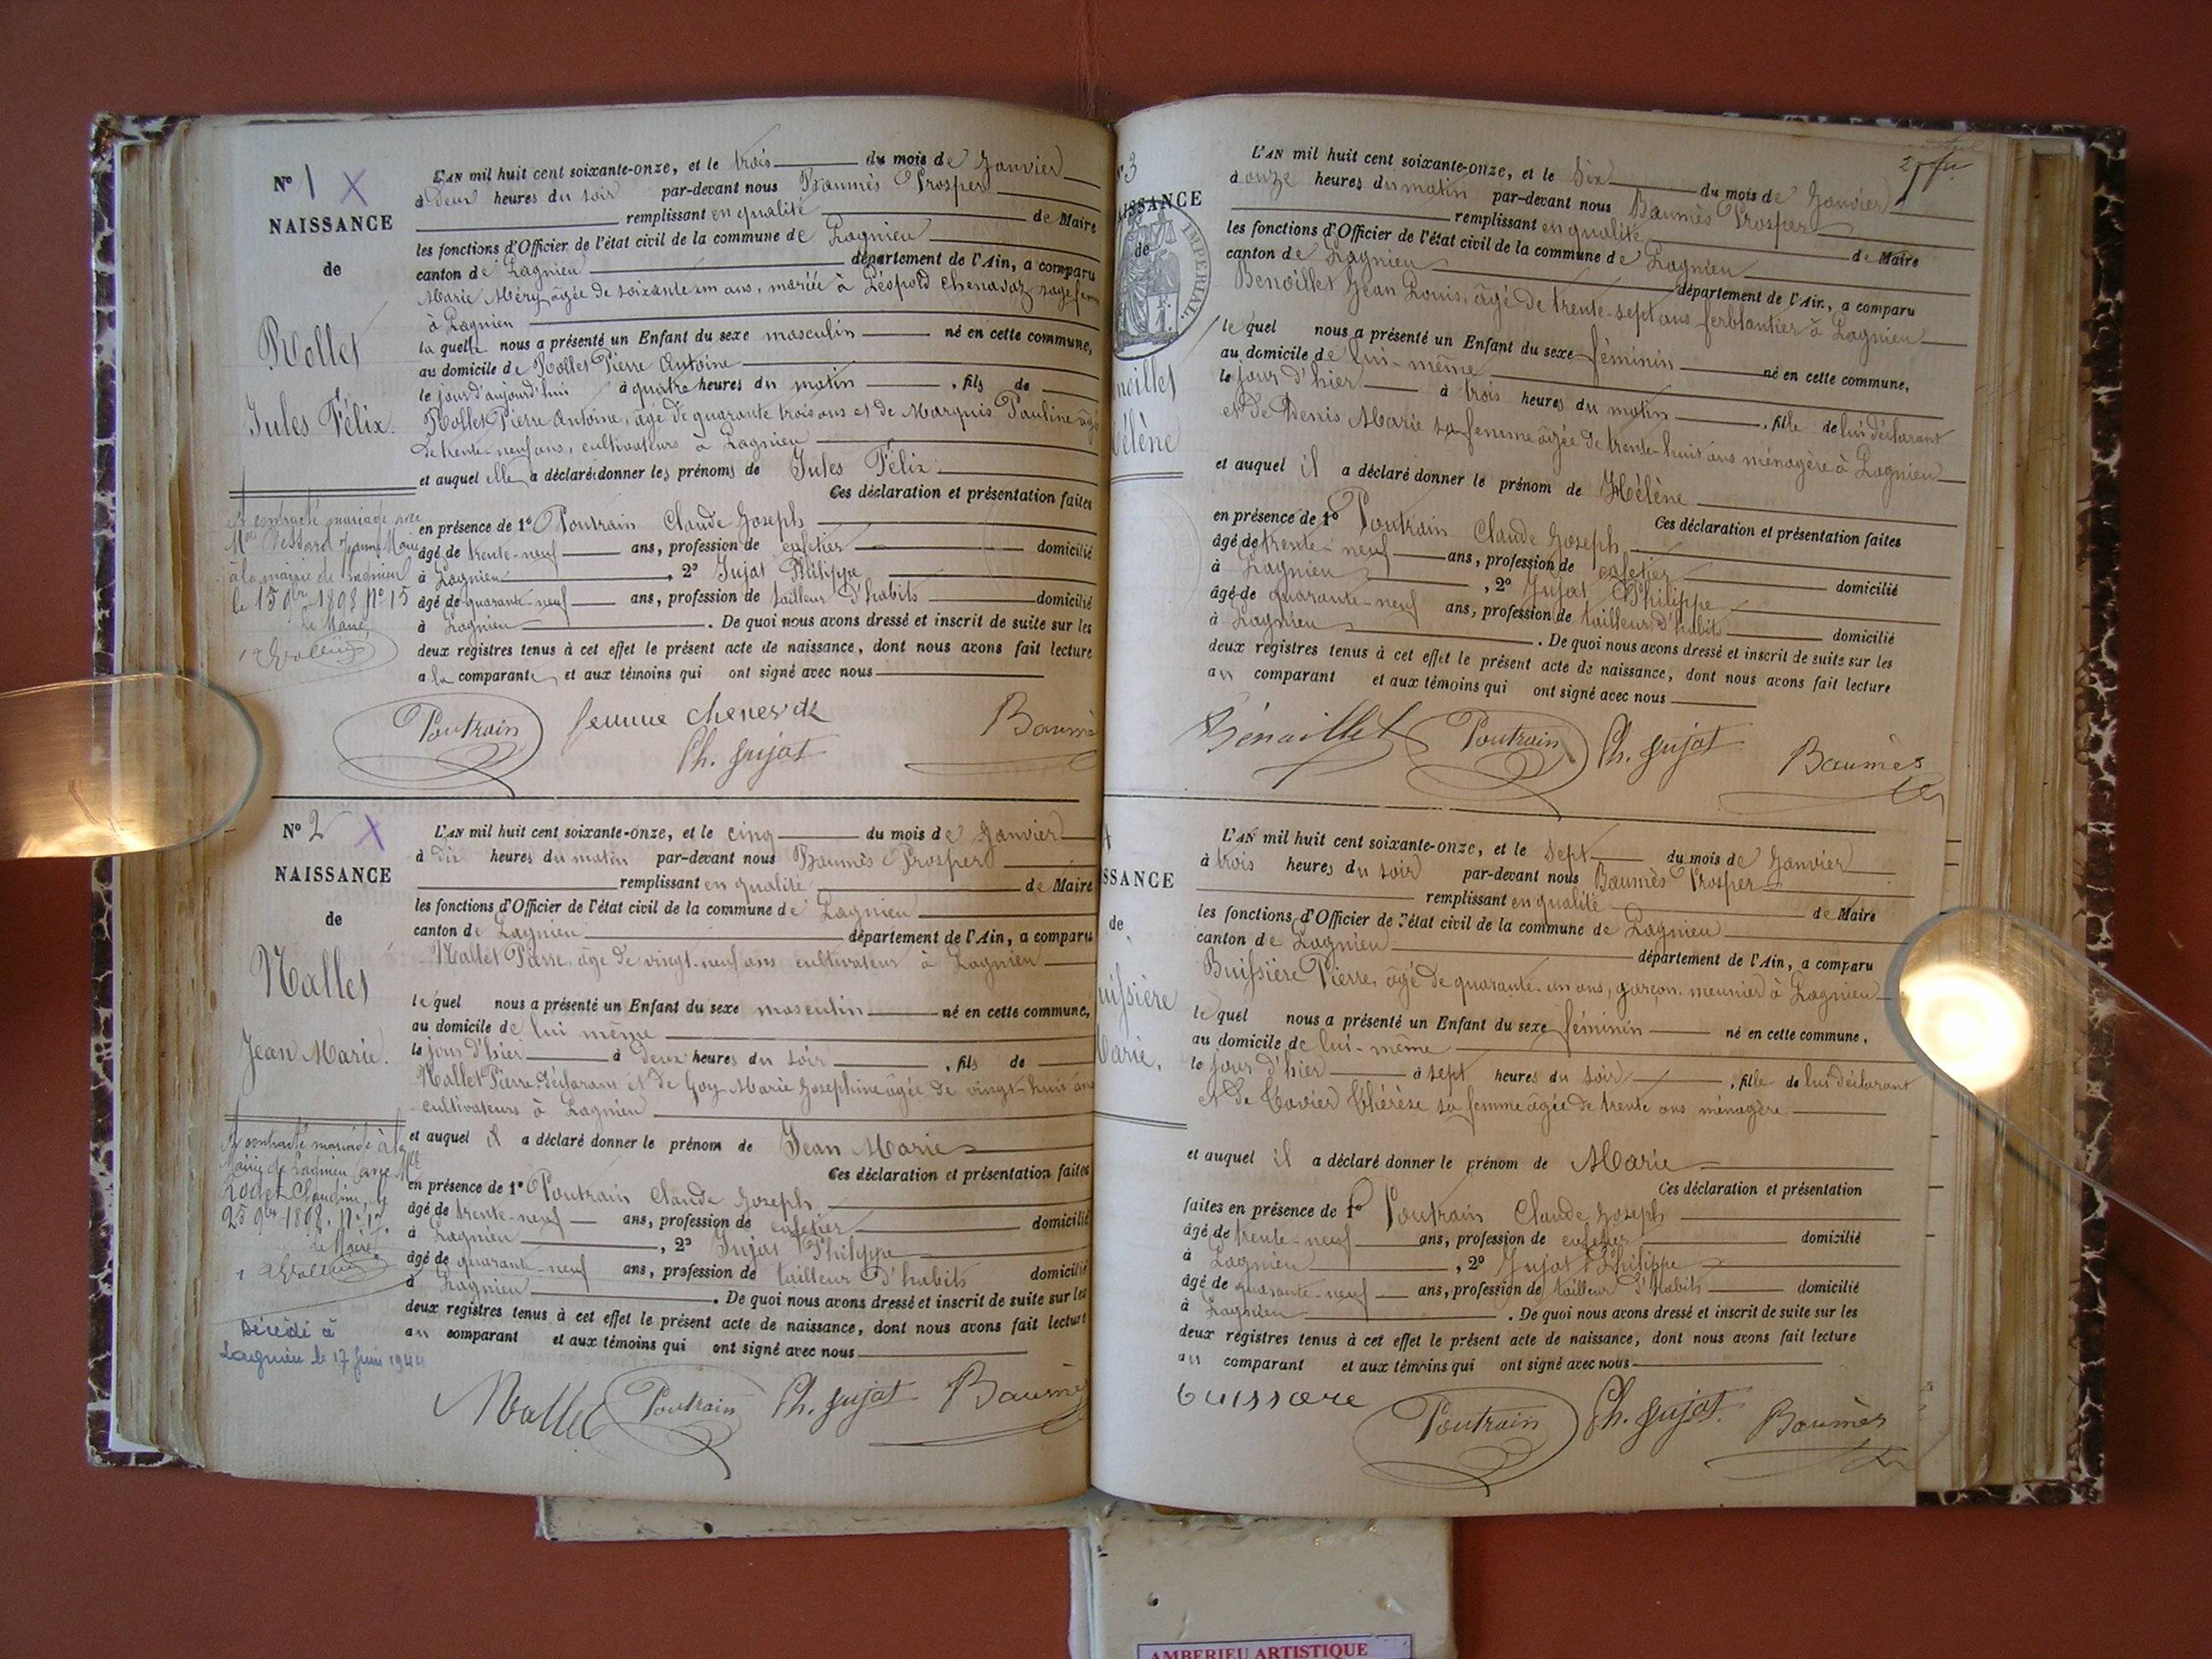 N° 1 X
NAISSANCE
de
Rollet
Jules Félix.
L'AN mil huit cent soixante-onze, et le trois du mois de Janvier
à deux heures du soir par-devant nous Baumès Prosper
remplissant en qualité de Maire
les fonctions d'Officier de l'état civil de la commune de Lagnieu
canton de Lagnieu département de l'Ain, a comparu
Marie Méry âgée de soixante un ans, mariée à Léopold Chenavaz sage femme
à Lagnieu
la quelle nous a présenté un Enfant du sexe masculin né en cette commune,
au domicile de Rollet Pierre Antoine
le jour d'aujourd'hui à quatre heures du matin , fils de
Rollet Pierre Antoine, âgé de quarante trois ans et de Marquis Pauline âgée
de trente-neuf ans, cultivateurs à Lagnieu
et auquel elle a déclaré donner les prénoms de Jules Félix
Ces déclaration et présentation faites
en présence de 1° Poutrain Claude Joseph
âgé de trente-neuf ans, profession de cafetier domicilié
à Lagnieu , 2° Jujat Philippe
âgé de quarante-neuf ans, profession de tailleur d'habits domicilié
à Lagnieu . De quoi nous avons dressé et inscrit de suite sur les
deux registres tenus à cet effet le présent acte de naissance, dont nous avons fait lecture
a la comparante et aux témoins qui ont signé avec nous
A contracté mariage avec
Jeanne Marie
à la mairie de Lagnieu
le 15 9bre 1898 N° 15
Le Maire
Poutrain femme chenevaz Baumès
Ph. Jujat
N° 2 X
NAISSANCE
de
Mallet
Jean Marie.
L'AN mil huit cent soixante-onze, et le cinq du mois de Janvier
à dix heures du matin par-devant nous Baumès Prosper
remplissant en qualité de Maire
les fonctions d'Officier de l'état civil de la commune de Lagnieu
canton de Lagnieu département de l'Ain, a comparu
Mallet Pierre âgé de vingt-neuf ans cultivateur à Lagnieu
le quel nous a présenté un Enfant du sexe masculin né en cette commune,
au domicile de lui même
le jour d'hier à deux heures du soir , fils de
Mallet Pierre déclarant et de Goy Marie Josephine âgée de vingt-huit ans
cultivateurs à Lagnieu
et auquel il a déclaré donner le prénom de Jean Marie
Ces déclaration et présentation faites
en présence de 1° Poutrain Claude Joseph
âgé de trente-neuf ans, profession de cafetier domicilié
à Lagnieu , 2° Jujat Philippe
âgé de quarante-neuf ans, profession de tailleur d'habits domicilié
à Lagnieu . De quoi nous avons dressé et inscrit de suite sur les
deux registres tenus à cet effet le présent acte de naissance, dont nous avons fait lecture
au comparant et aux témoins qui ont signé avec nous
A contracté mariage à la
Mairie de Lagnieu avec Mlle
Claudine, le
25 9bre 1898. N° 17.
Le Maire
Décédé à
Lagnieu le 17 Juin 1944
Mallet Poutrain Ph. Jujat Baumès
N° 3
NAISSANCE
de
IMPERIAL.
Hélène
2
L'AN mil huit cent soixante-onze, et le six du mois de Janvier
à onze heures du matin par-devant nous Baumès Prosper
remplissant en qualité de Maire
les fonctions d'Officier de l'état civil de la commune de Lagnieu
canton de Lagnieu département de l'Ain, a comparu
Benoillet Jean Louis, âgé de trente-sept ans ferblantier à Lagnieu
le quel nous a présenté un Enfant du sexe féminin né en cette commune,
au domicile de lui-même
le jour d'hier à trois heures du matin , fille de lui déclarant
et de Denis Marie sa femme âgée de trente-huit ans ménagère à Lagnieu
et auquel il a déclaré donner le prénom de Hélène
Ces déclaration et présentation faites
en présence de 1° Poutrain Claude Joseph
âgé de trente-neuf ans, profession de cafetier domicilié
à Lagnieu , 2° Jujat Philippe
âgé de quarante-neuf ans, profession de tailleur d'habits domicilié
à Lagnieu . De quoi nous avons dressé et inscrit de suite sur les
deux registres tenus à cet effet le présent acte de naissance, dont nous avons fait lecture
au comparant et aux témoins qui ont signé avec nous
Bénoillet Poutrain Ph. Jujat Baumès
4
SSANCE
de
uissière
Marie.
L'AN mil huit cent soixante-onze, et le sept du mois de Janvier
à trois heures du soir par-devant nous Baumès Prosper
remplissant en qualité de Maire
les fonctions d'Officier de l'état civil de la commune de Lagnieu
canton de Lagnieu département de l'Ain, a comparu
Buissière Pierre, âgé de quarante-un ans, garçon meunier à Lagnieu
le quel nous a présenté un Enfant du sexe féminin né en cette commune,
au domicile de lui-même
le jour d'hier à sept heures du soir , fille de lui déclarant
et de Tavier Thérèse sa femme âgée de trente ans ménagère
et auquel il a déclaré donner le prénom de Marie
Ces déclaration et présentation
faites en présence de 1° Poutrain Claude Joseph
âgé de trente-neuf ans, profession de cafetier domicilié
à Lagnieu , 2° Jujat Philippe
âgé de quarante-neuf ans, profession de tailleur d'habits domicilié
à Lagnieu . De quoi nous avons dressé et inscrit de suite sur les
deux registres tenus à cet effet le présent acte de naissance, dont nous avons fait lecture
au comparant et aux témoins qui ont signé avec nous
buissare Poutrain Ph. Jujat. Baumès
AMBERIEU ARTISTIQUE